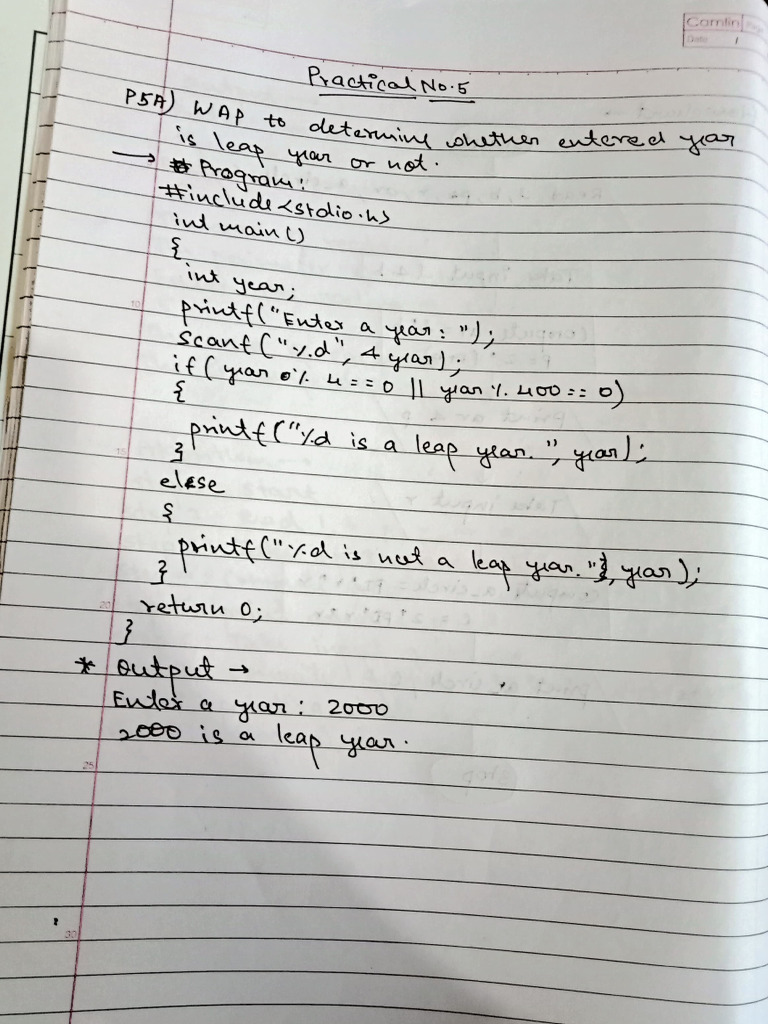 Camlin
Date 1
Practical No.5
P5A) WAP to determine whether entered year
is leap year or not.
→ * Program:
#include<stdio.h>
int main()
{
int year;
10
printf("Enter a year: ");
scanf("%d", &year);
if( year % 4 == 0 || year % 400 == 0)
{
printf("%d is a leap year. ", year);
15
}
else
{
printf("%d is not a leap year.", year);
}
20
return 0;
}
* Output →
Enter a year: 2000
2000 is a leap year.
25
30